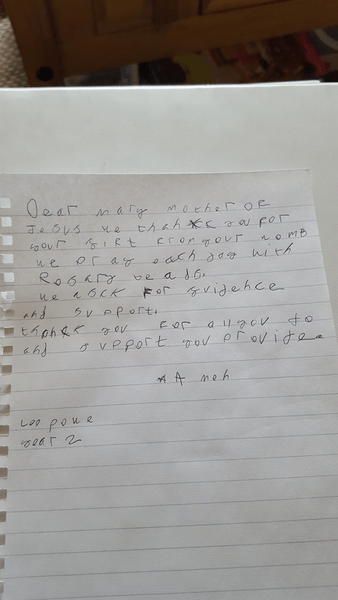 Dear mary mother OF
Jesus we thank you For
your gift From your womb
we pray each day with
Rosary beads.
we asck for guidence
and support.
thank you For all you do
and support you provide.
Amen
year 2